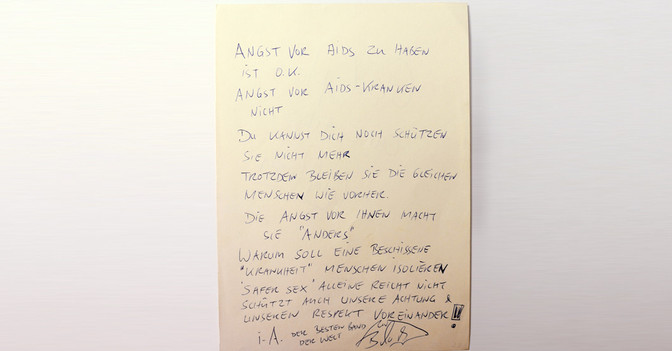 ANGST VOR AIDS ZU HABEN
IST O.K.
ANGST VOR AIDS-KRANKEN
NICHT
DU KANNST DICH NOCH SCHÜTZEN
SIE NICHT MEHR
TROTZDEM BLEIBEN SIE DIE GLEICHEN
MENSCHEN WIE VORHER.
DIE ANGST VOR IHNEN MACHT
SIE "ANDERS"
WARUM SOLL EINE BESCHISSENE
"KRANKHEIT" MENSCHEN ISOLIEREN
'SAFER SEX' ALLEINE REICHT NICHT
SCHÜTZT AUCH UNSERE ACHTUNG &
UNSEREN RESPEKT VOREINANDER!
i.A. DER BESTEN BAND
DER WELT